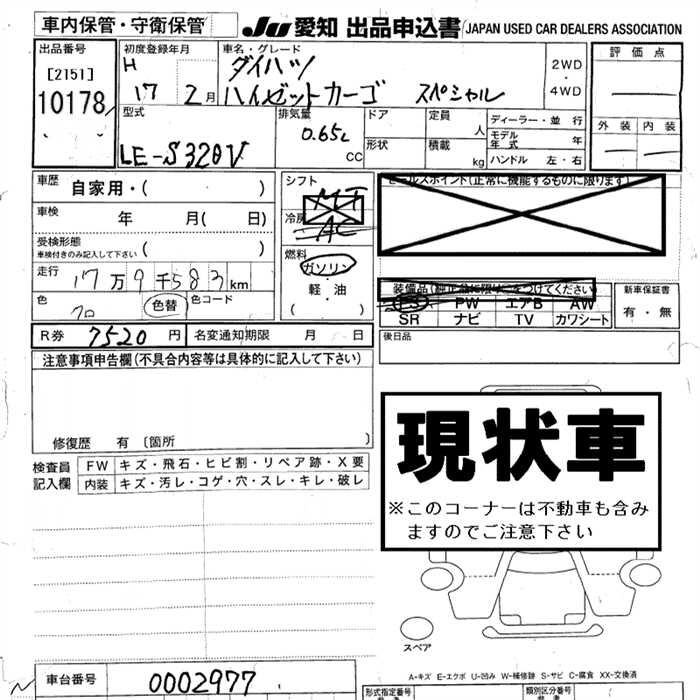 車内保管・守衛保管
JU 愛知 出品申込書 JAPAN USED CAR DEALERS ASSOCIATION
出品番号
[2151]
10178
初度登録年月
H
17 2月
車名・グレード
ダイハツ
ハイゼットカーゴ スペシャル
2WD
・
4WD
評価点
外装 内装
型式
LE-S320V
排気量
0.65L
CC
ドア
形状
定員
人
積載
kg
ディーラー・並行
モデル年式 年
ハンドル 左・右
車歴 自家用・( )
車検 年 月( 日)
受検形態
車検付きのみ記入して下さい ( )
走行 17万9千583km
色
クロ
色替
色コード
シフト
MT
冷房
AC
燃料
ガソリン
・
軽・油
( )
セールスポイント(正常に機能するものに限ります)
装備品(純正品に限り○をつけてください)
PS PW エアB AW
SR ナビ TV カワシート
新車保証書
有・無
R券 7520円 名変通知期限 月 日
後日品
注意事項申告欄(不具合内容等は具体的に記入して下さい)
修復歴 有 〔箇所 〕
検査員
記入欄
FW キズ・飛石・ヒビ割・リペア跡・X要
内装 キズ・汚レ・コゲ・穴・スレ・キレ・破レ
現状車
※このコーナーは不動車も含み
ますのでご注意下さい
スペア
A-キズ E-エクボ U-凹み W-補修跡 S-サビ C-腐食 XX-交換済
車台番号 0002977
形式指定番号
類別区分番号